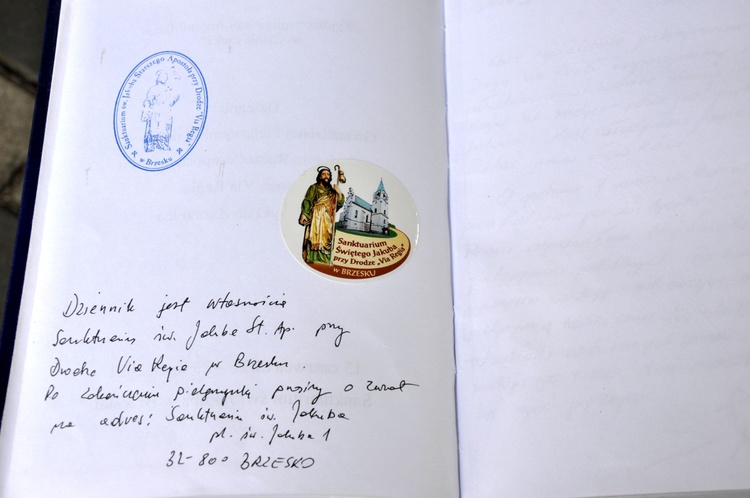 Sanktuarium św. Jakuba Starszego Apostoła przy Drodze "Via Regia"
w Brzesku
Sanktuarium
Świętego Jakuba
przy Drodze „Via Regia"
w BRZESKU
Dziennik jest własnością
Sanktuarium św. Jakuba St. Ap. przy
Drodze Via Regia w Brzesku.
Po zakończeniu pielgrzymki prosimy o zwrot
na adres: Sanktuarium św. Jakuba
pl. św. Jakuba 1
32-800 BRZESKO